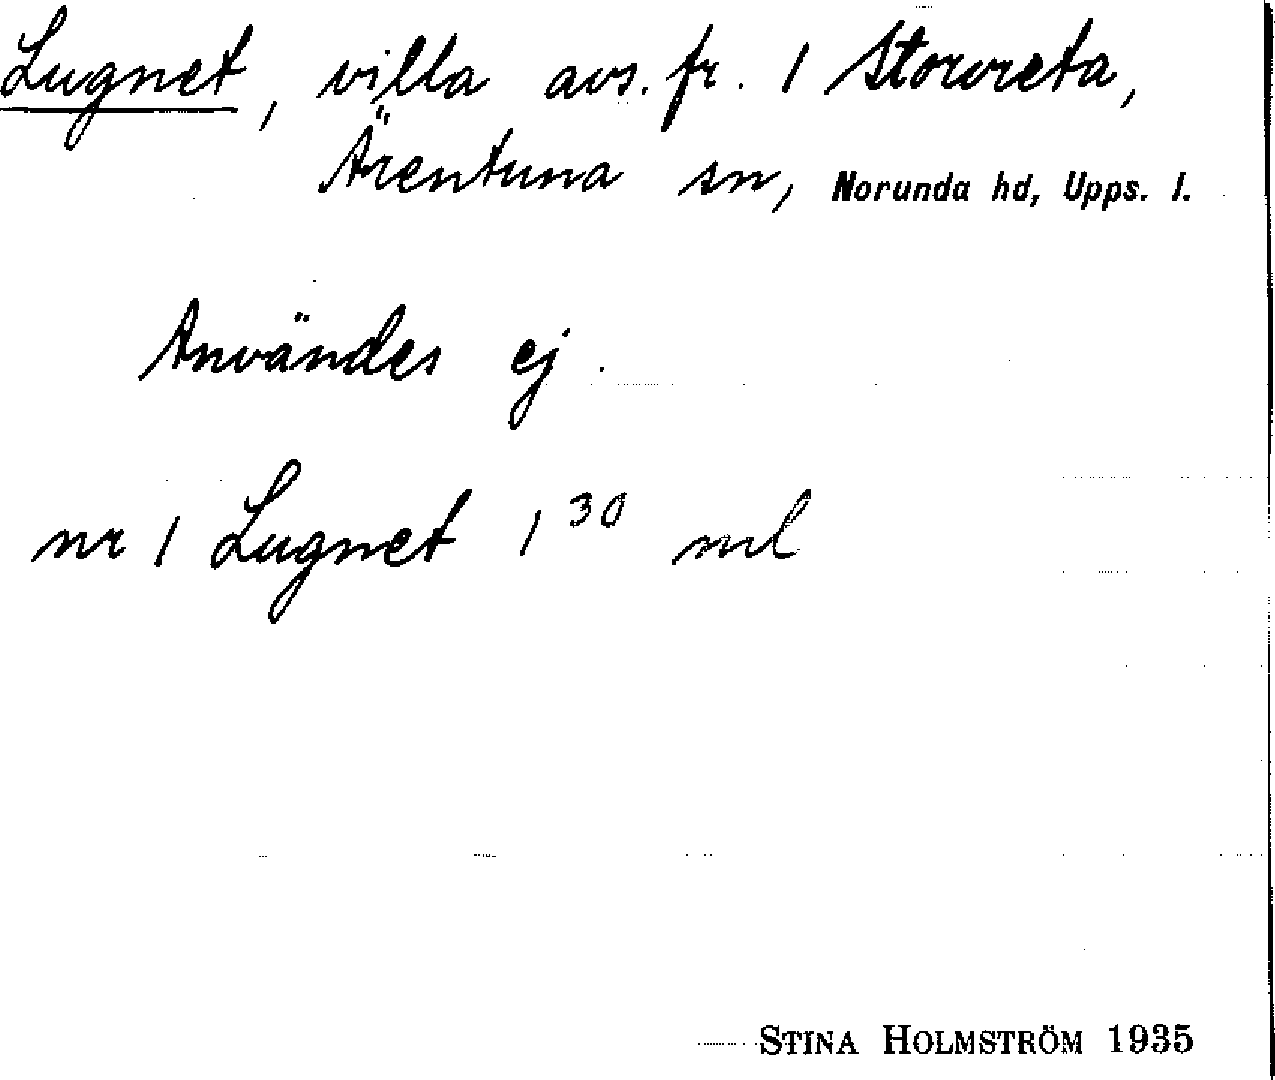 Lugnet, villa avs. fr. 1 Storvreta,
Ärentuna sn, Norunda hd, Upps. l.
Användes ej.
nr 1 Lugnet 1³⁰ ml
STINA HOLMSTRÖM 1935